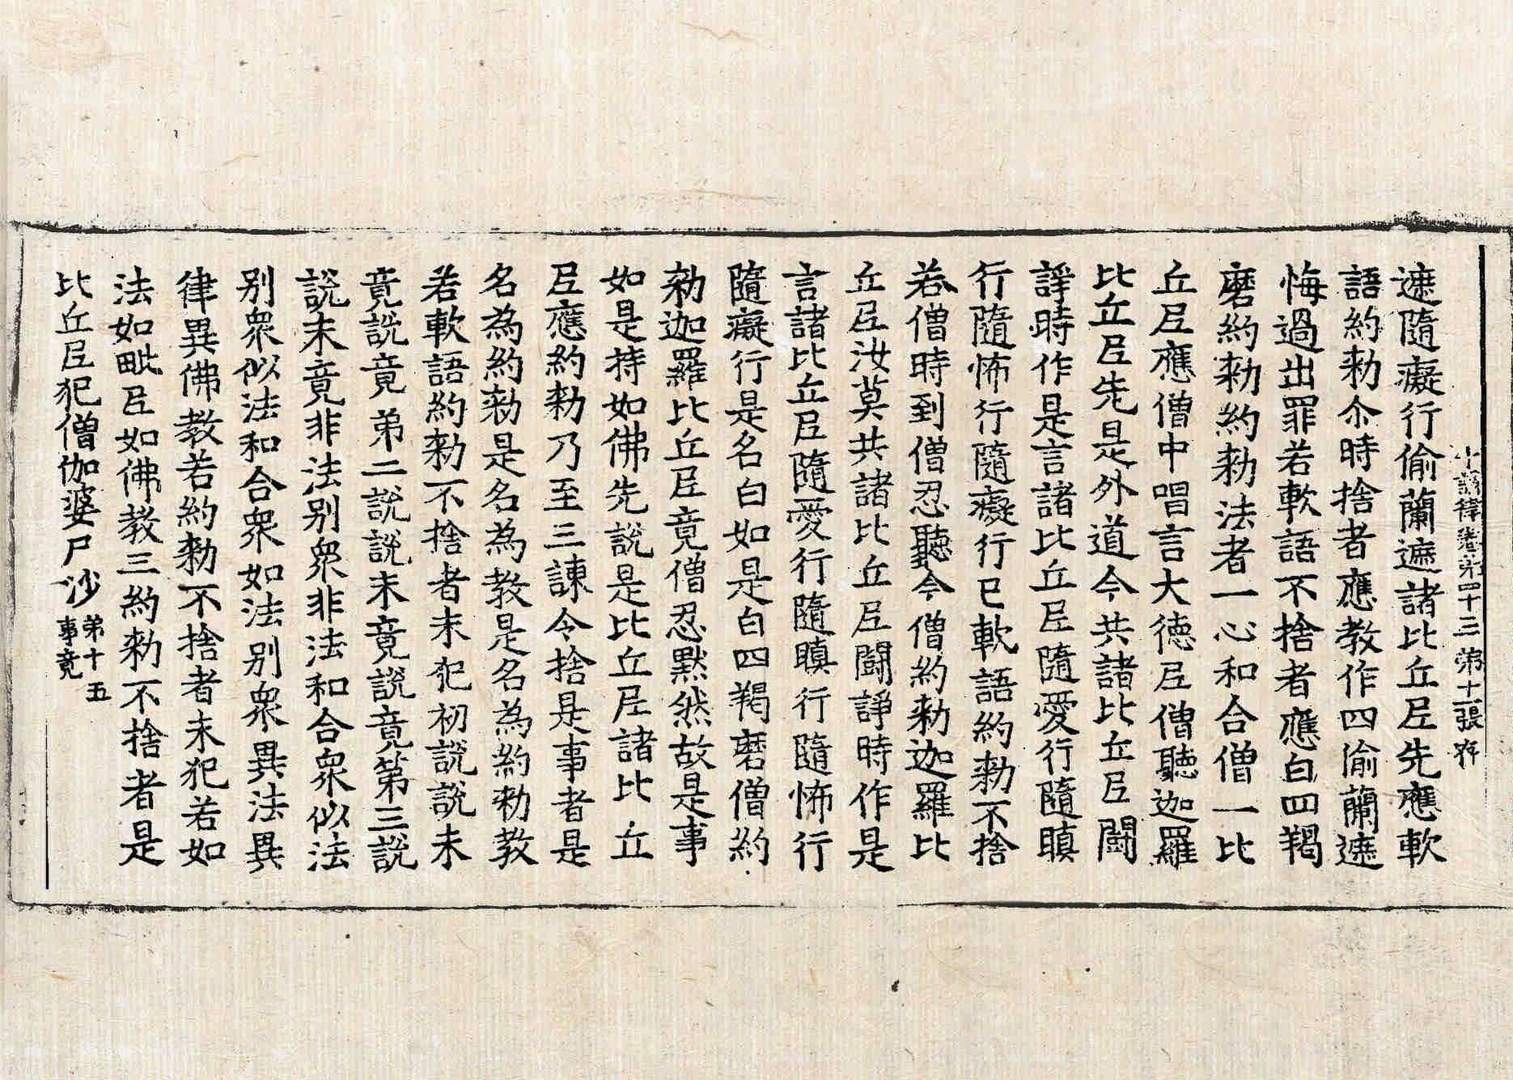 十誦律卷第四十三第十一張存
遮隨癡行偷蘭遮諸比丘𡰱先應軟
語約勑尒時捨者應教作四偷蘭遮
悔過出罪若軟語不捨者應白四羯
磨約勑約勑法者一心和合僧一比
丘𡰱應僧中唱言大德𡰱僧聽迦羅
比丘𡰱先是外道今共諸比丘𡰱鬪
諍時作是言諸比丘𡰱隨愛行隨瞋
行隨怖行隨癡行已軟語約勑不捨
若僧時到僧忍聽今僧約勑迦羅比
丘𡰱汝莫共諸比丘𡰱鬪諍時作是
言諸比丘𡰱隨愛行隨瞋行隨怖行
隨癡行是名白如是白四羯磨僧約
勑迦羅比丘𡰱竟僧忍默然故是事
如是持如佛先說是比丘𡰱諸比丘
𡰱應約勑乃至三諫令捨是事者是
名為約勑是名為教是名為約勑教
若軟語約勑不捨者未犯初說說未
竟說竟弟二說說未竟說竟第三說
說未竟非法別衆非法和合衆似法
別衆似法和合衆如法別衆異法異
律異佛教若約勑不捨者未犯若如
法如毗𡰱如佛教三約勑不捨者是
比丘𡰱犯僧伽婆尸沙弟十五事竟